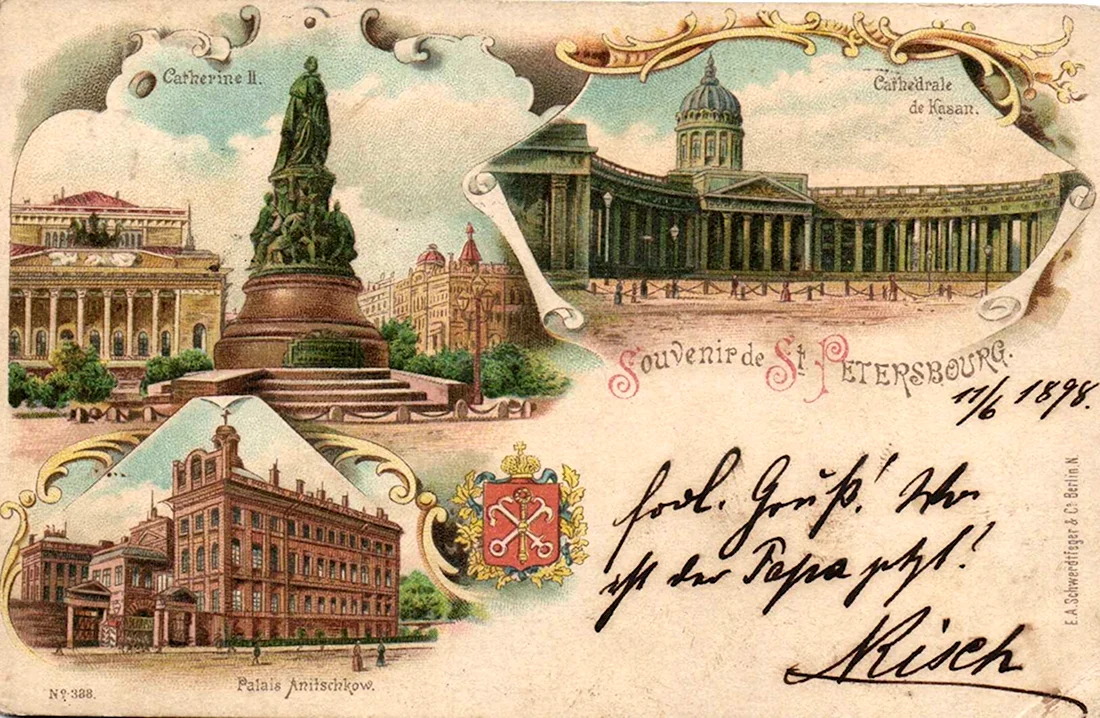 Catherine II.
Cathedrale
de Kasan.
Souvenir de St. Petersbourg.
11/6 1898.
frdl. Gruß! Wo
ist der Papa jetzt?
Risch
E.A. Schwerdtfeger & Co Berlin.N.
Palais Anitschkow.
No. 388.